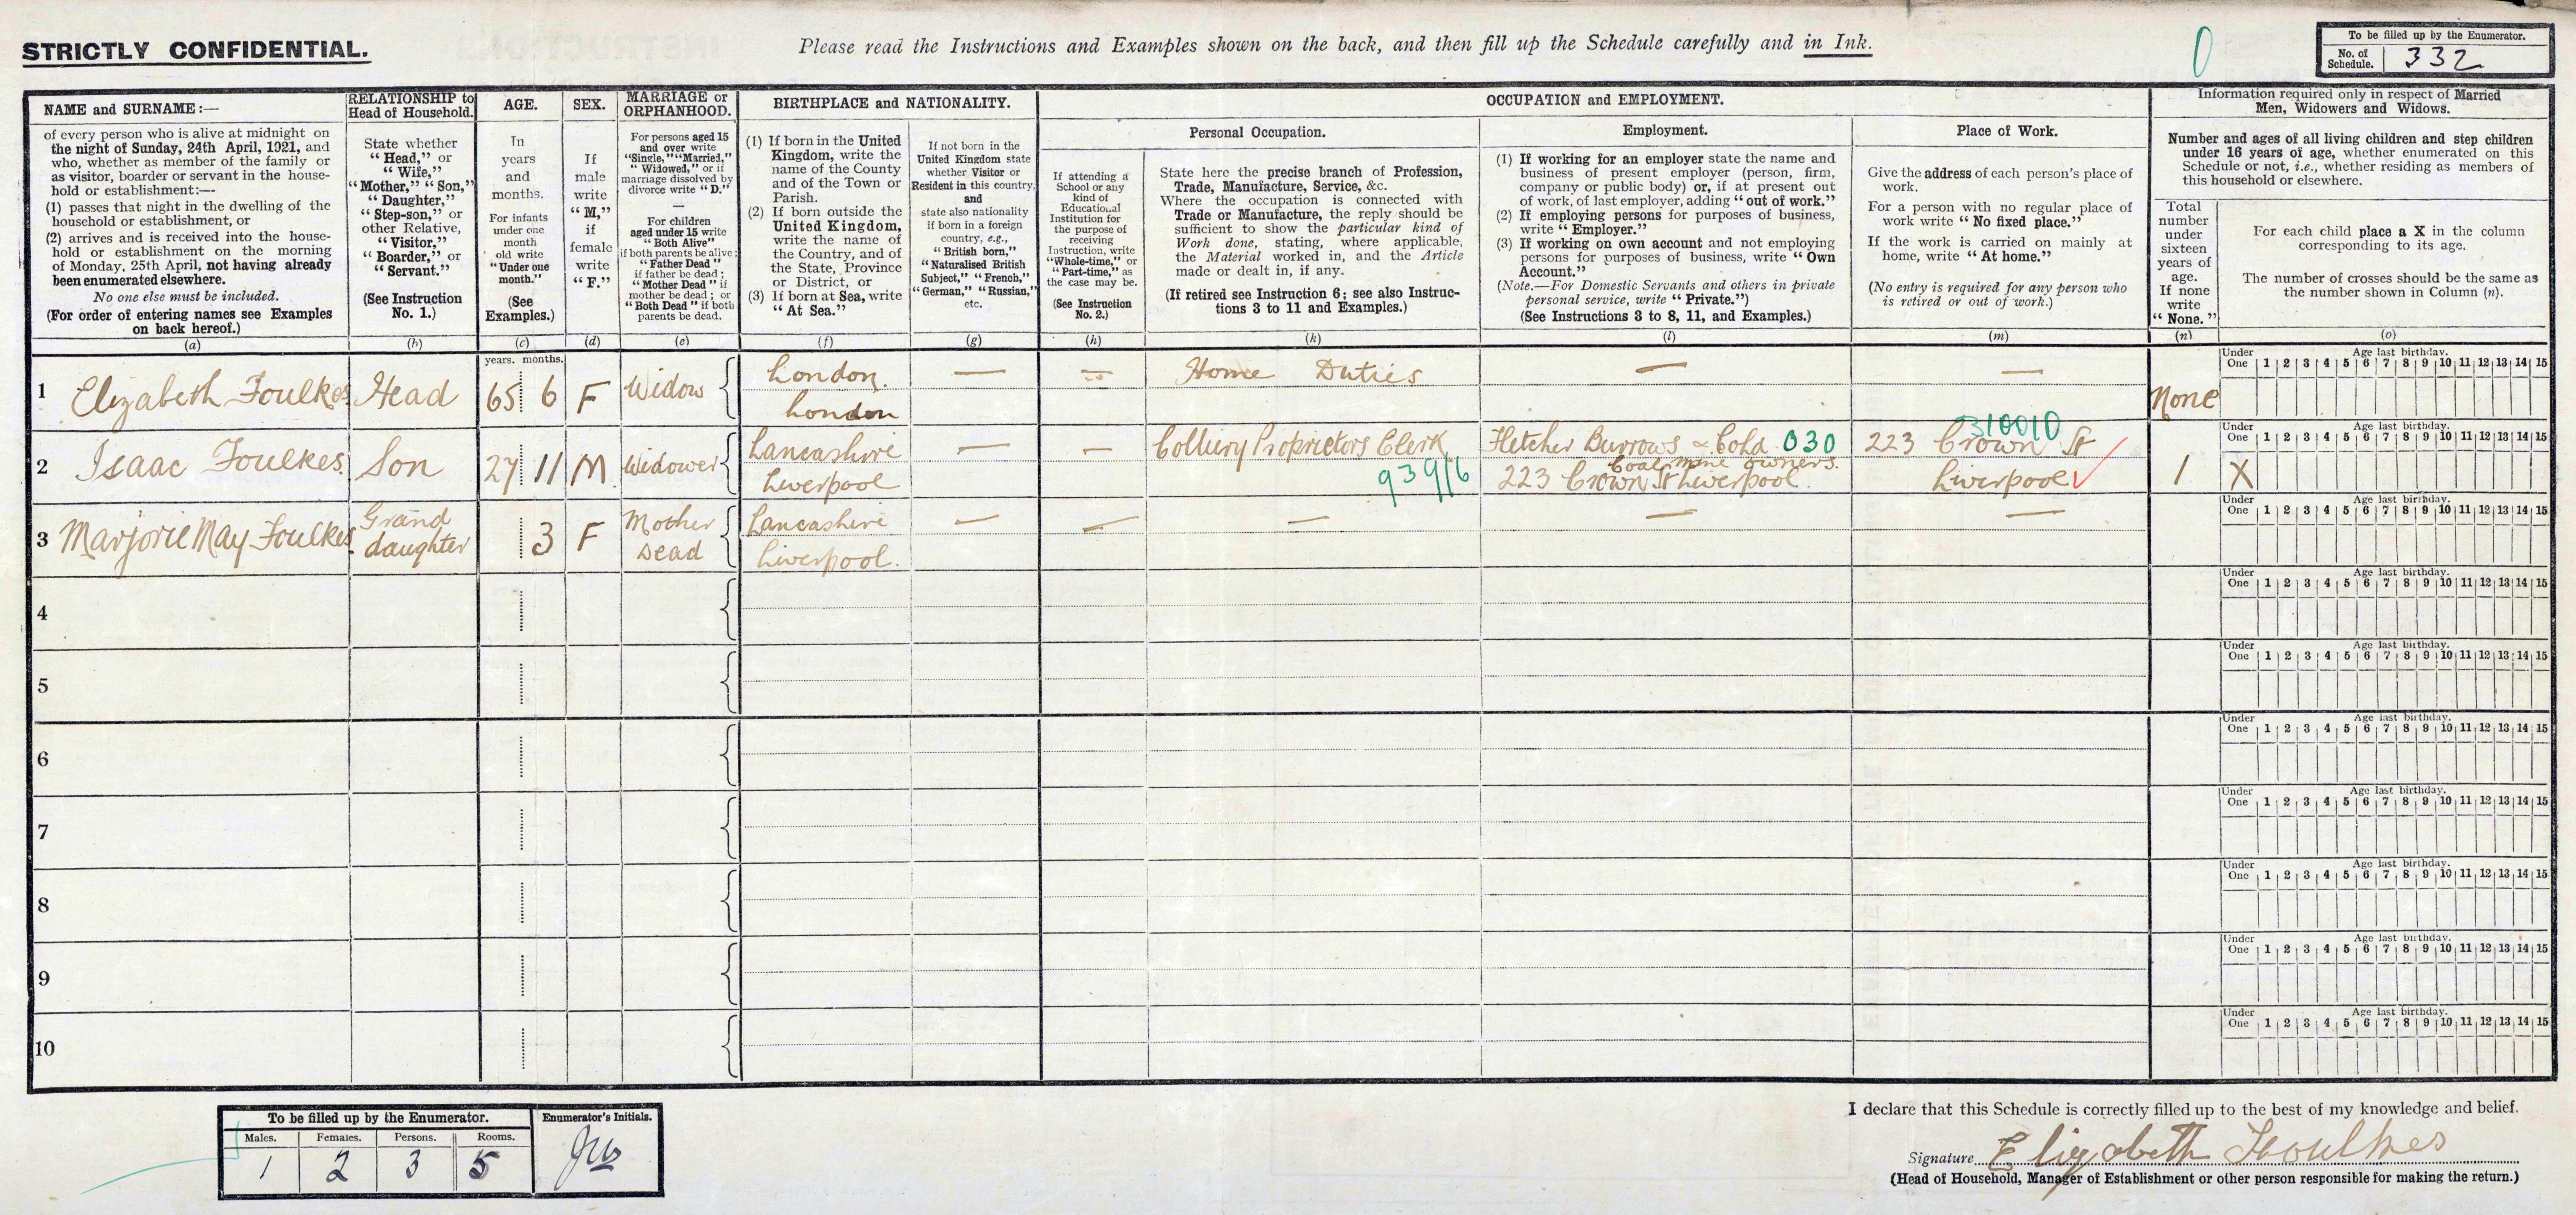 STRICTLY CONFIDENTIAL.
Please read the Instructions and Examples shown on the back, and then fill up the Schedule carefully and in Ink.
0
To be filled up by the Enumerator.
No. of Schedule. 332
NAME and SURNAME:—
of every person who is alive at midnight on
the night of Sunday, 24th April, 1921, and
who, whether as member of the family or
as visitor, boarder or servant in the house-
hold or establishment:—
(1) passes that night in the dwelling of the
household or establishment, or
(2) arrives and is received into the house-
hold or establishment on the morning
of Monday, 25th April, not having already
been enumerated elsewhere.
No one else must be included.
(For order of entering names see Examples
on back hereof.)
(a)
RELATIONSHIP to
Head of Household.
State whether
"Head," or
"Wife,"
"Mother," "Son,"
"Daughter,"
"Step-son," or
other Relative,
"Visitor,"
"Boarder," or
"Servant."
(See Instruction
No. 1.)
(b)
AGE.
In
years
and
months.
For infants
under one
month
old write
"Under one
month."
(See
Examples.)
(c)
SEX.
If
male
write
"M,"
if
female
write
"F."
(d)
MARRIAGE or
ORPHANHOOD.
For persons aged 15
and over write
"Single," "Married,"
"Widowed," or if
marriage dissolved by
divorce write "D."
—
For children
aged under 15 write
"Both Alive"
if both parents be alive;
"Father Dead"
if father be dead;
"Mother Dead" if
mother be dead; or
"Both Dead" if both
parents be dead.
(e)
BIRTHPLACE and NATIONALITY.
(1) If born in the United
Kingdom, write the
name of the County
and of the Town or
Parish.
(2) If born outside the
United Kingdom,
write the name of
the Country, and of
the State, Province
or District, or
(3) If born at Sea, write
"At Sea."
(f)
If not born in the
United Kingdom state
whether Visitor or
Resident in this country,
and
state also nationality
if born in a foreign
country, e.g.,
"British born,"
"Naturalised British
Subject," "French,"
"German," "Russian,"
etc.
(g)
OCCUPATION and EMPLOYMENT.
If attending a
School or any
kind of
Educational
Institution for
the purpose of
receiving
Instruction, write
"Whole-time," or
"Part-time," as
the case may be.
(See Instruction
No. 2.)
(h)
Personal Occupation.
State here the precise branch of Profession,
Trade, Manufacture, Service, &c.
Where the occupation is connected with
Trade or Manufacture, the reply should be
sufficient to show the particular kind of
Work done, stating, where applicable,
the Material worked in, and the Article
made or dealt in, if any.
(If retired see Instruction 6; see also Instruc-
tions 3 to 11 and Examples.)
(k)
Employment.
(1) If working for an employer state the name and
business of present employer (person, firm,
company or public body) or, if at present out
of work, of last employer, adding "out of work."
(2) If employing persons for purposes of business,
write "Employer."
(3) If working on own account and not employing
persons for purposes of business, write "Own
Account."
(Note.—For Domestic Servants and others in private
personal service, write "Private.")
(See Instructions 3 to 8, 11, and Examples.)
(l)
Place of Work.
Give the address of each person's place of
work.
For a person with no regular place of
work write "No fixed place."
If the work is carried on mainly at
home, write "At home."
(No entry is required for any person who
is retired or out of work.)
(m)
Information required only in respect of Married
Men, Widowers and Widows.
Number and ages of all living children and step children
under 16 years of age, whether enumerated on this
Schedule or not, i.e., whether residing as members of
this household or elsewhere.
Total
number
under
sixteen
years of
age.
If none
write
"None."
(n)
For each child place a X in the column
corresponding to its age.
The number of crosses should be the same as
the number shown in Column (n).
(o)
years. months.
1 Elizabeth Foulkes Head 65 6 F Widow London. London — — Home Duties — — None
Under One Age last birthday. 1 2 3 4 5 6 7 8 9 10 11 12 13 14 15
2 Isaac Foulkes. Son 27 11 M Widower Lancashire Liverpool — — Colliery Proprietors Clerk 939/6
Fletcher Burrows & Co Ltd 030
Coal mine owners.
223 Crown St Liverpool.
310010
223 Crown St
Liverpool
1 X
Under One Age last birthday. 1 2 3 4 5 6 7 8 9 10 11 12 13 14 15
3 Marjorie May Foulkes. Grand daughter 3 F Mother Dead Lancashire Liverpool. — — — — —
Under One Age last birthday. 1 2 3 4 5 6 7 8 9 10 11 12 13 14 15
4
Under One Age last birthday. 1 2 3 4 5 6 7 8 9 10 11 12 13 14 15
5
Under One Age last birthday. 1 2 3 4 5 6 7 8 9 10 11 12 13 14 15
6
Under One Age last birthday. 1 2 3 4 5 6 7 8 9 10 11 12 13 14 15
7
Under One Age last birthday. 1 2 3 4 5 6 7 8 9 10 11 12 13 14 15
8
Under One Age last birthday. 1 2 3 4 5 6 7 8 9 10 11 12 13 14 15
9
Under One Age last birthday. 1 2 3 4 5 6 7 8 9 10 11 12 13 14 15
10
Under One Age last birthday. 1 2 3 4 5 6 7 8 9 10 11 12 13 14 15
To be filled up by the Enumerator.
Males. Females. Persons. Rooms.
1 2 3 5
Enumerator's Initials.
I declare that this Schedule is correctly filled up to the best of my knowledge and belief.
Signature Elizabeth Foulkes
(Head of Household, Manager of Establishment or other person responsible for making the return.)